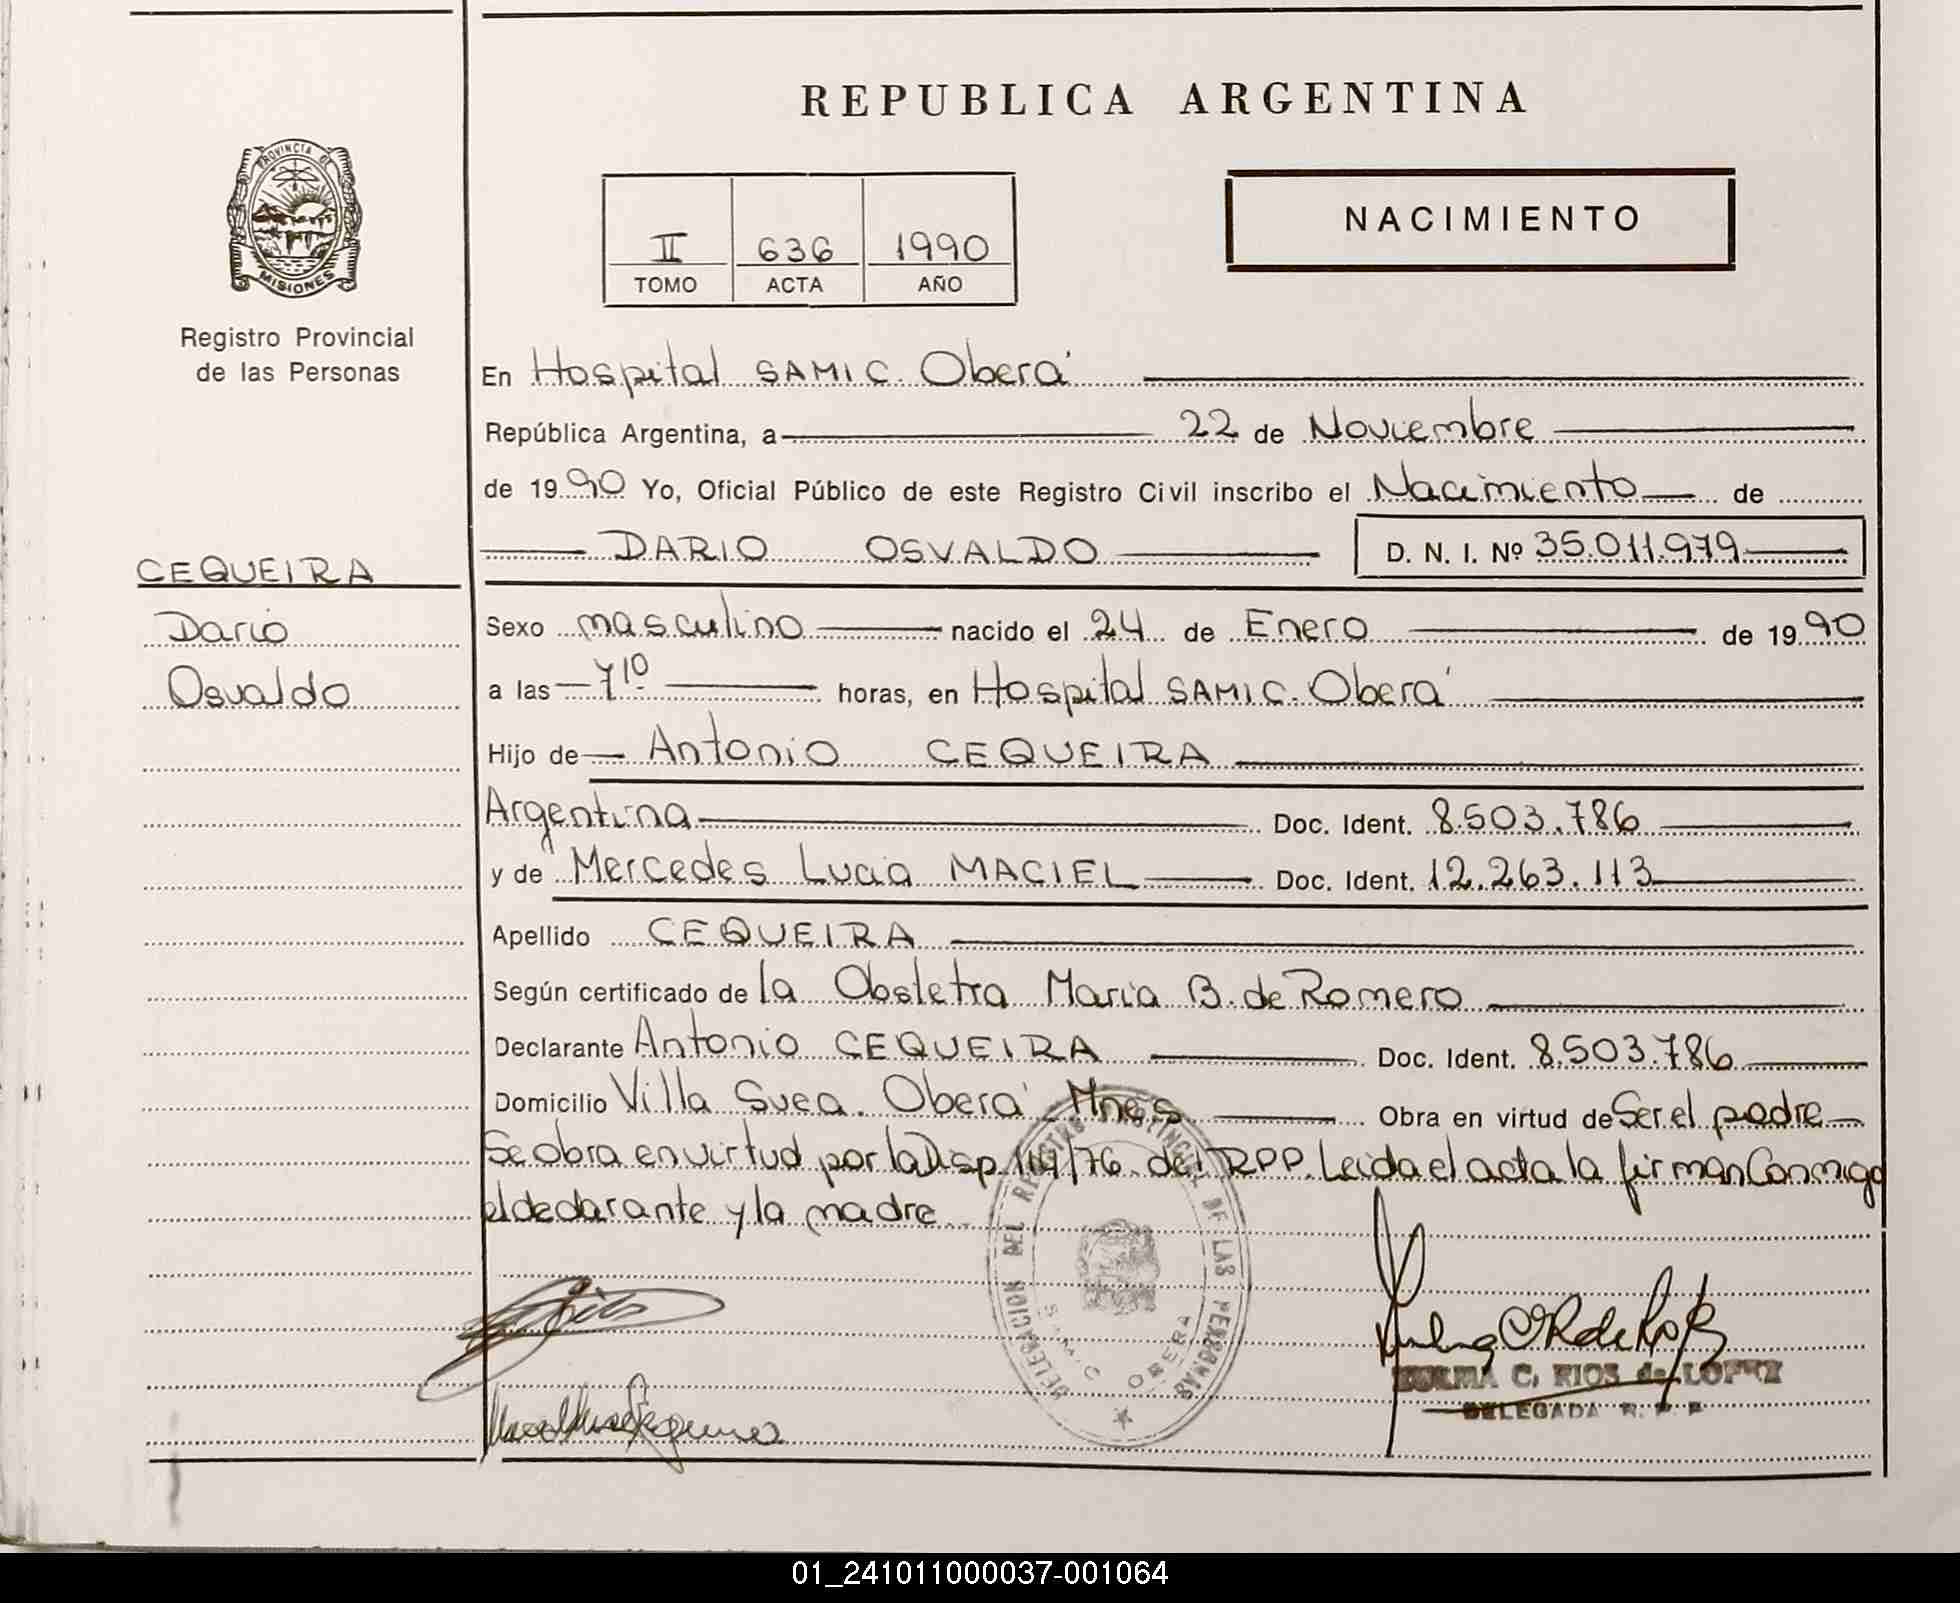 REPUBLICA ARGENTINA
PROVINCIA DE
MISIONES
Registro Provincial
de las Personas
NACIMIENTO
II 636 1990
TOMO ACTA AÑO
En Hospital SAMIC. Oberá
República Argentina, a 22 de Noviembre
de 1990 Yo, Oficial Público de este Registro Civil inscribo el Nacimiento de
DARIO OSVALDO D. N. I. Nº 35.011.979
CEQUEIRA
Dario
Osvaldo
Sexo masculino nacido el 24 de Enero de 1990
a las 7¹⁰ horas, en Hospital SAMIC. Oberá
Hijo de Antonio CEQUEIRA
Argentina Doc. Ident. 8.503.786
y de Mercedes Lucia MACIEL Doc. Ident. 12.263.113
Apellido CEQUEIRA
Según certificado de la Obstetra Maria B. de Romero
Declarante Antonio CEQUEIRA Doc. Ident. 8.503.786
Domicilio Villa Svea. Oberá Mnes Obra en virtud de Ser el padre
Se obra en virtud por la Disp. 119/76 del RPP. Leida el acta la firman Conmigo
el declarante y la madre
DELEGACION DEL REGISTRO PROVINCIAL DE LAS PERSONAS
SAMIC OBERA
C. RIOS de LOPEZ
DELEGADA R. P. P.
01_241011000037-001064